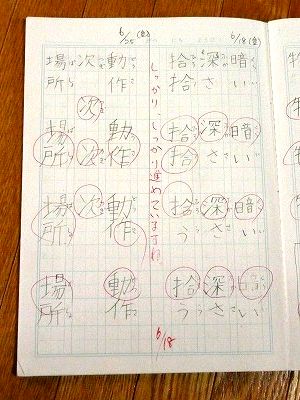 6/18(金)
暗い 暗い 暗い 暗い
深さ 深さ 深さ 深さ
拾拾 拾拾 拾う 拾う
しっかり、しっかり進めていますね
6/18
6/25(金)
動作 動作 動作 動作
次 次 次 次 次
場所 場所 場所 場所